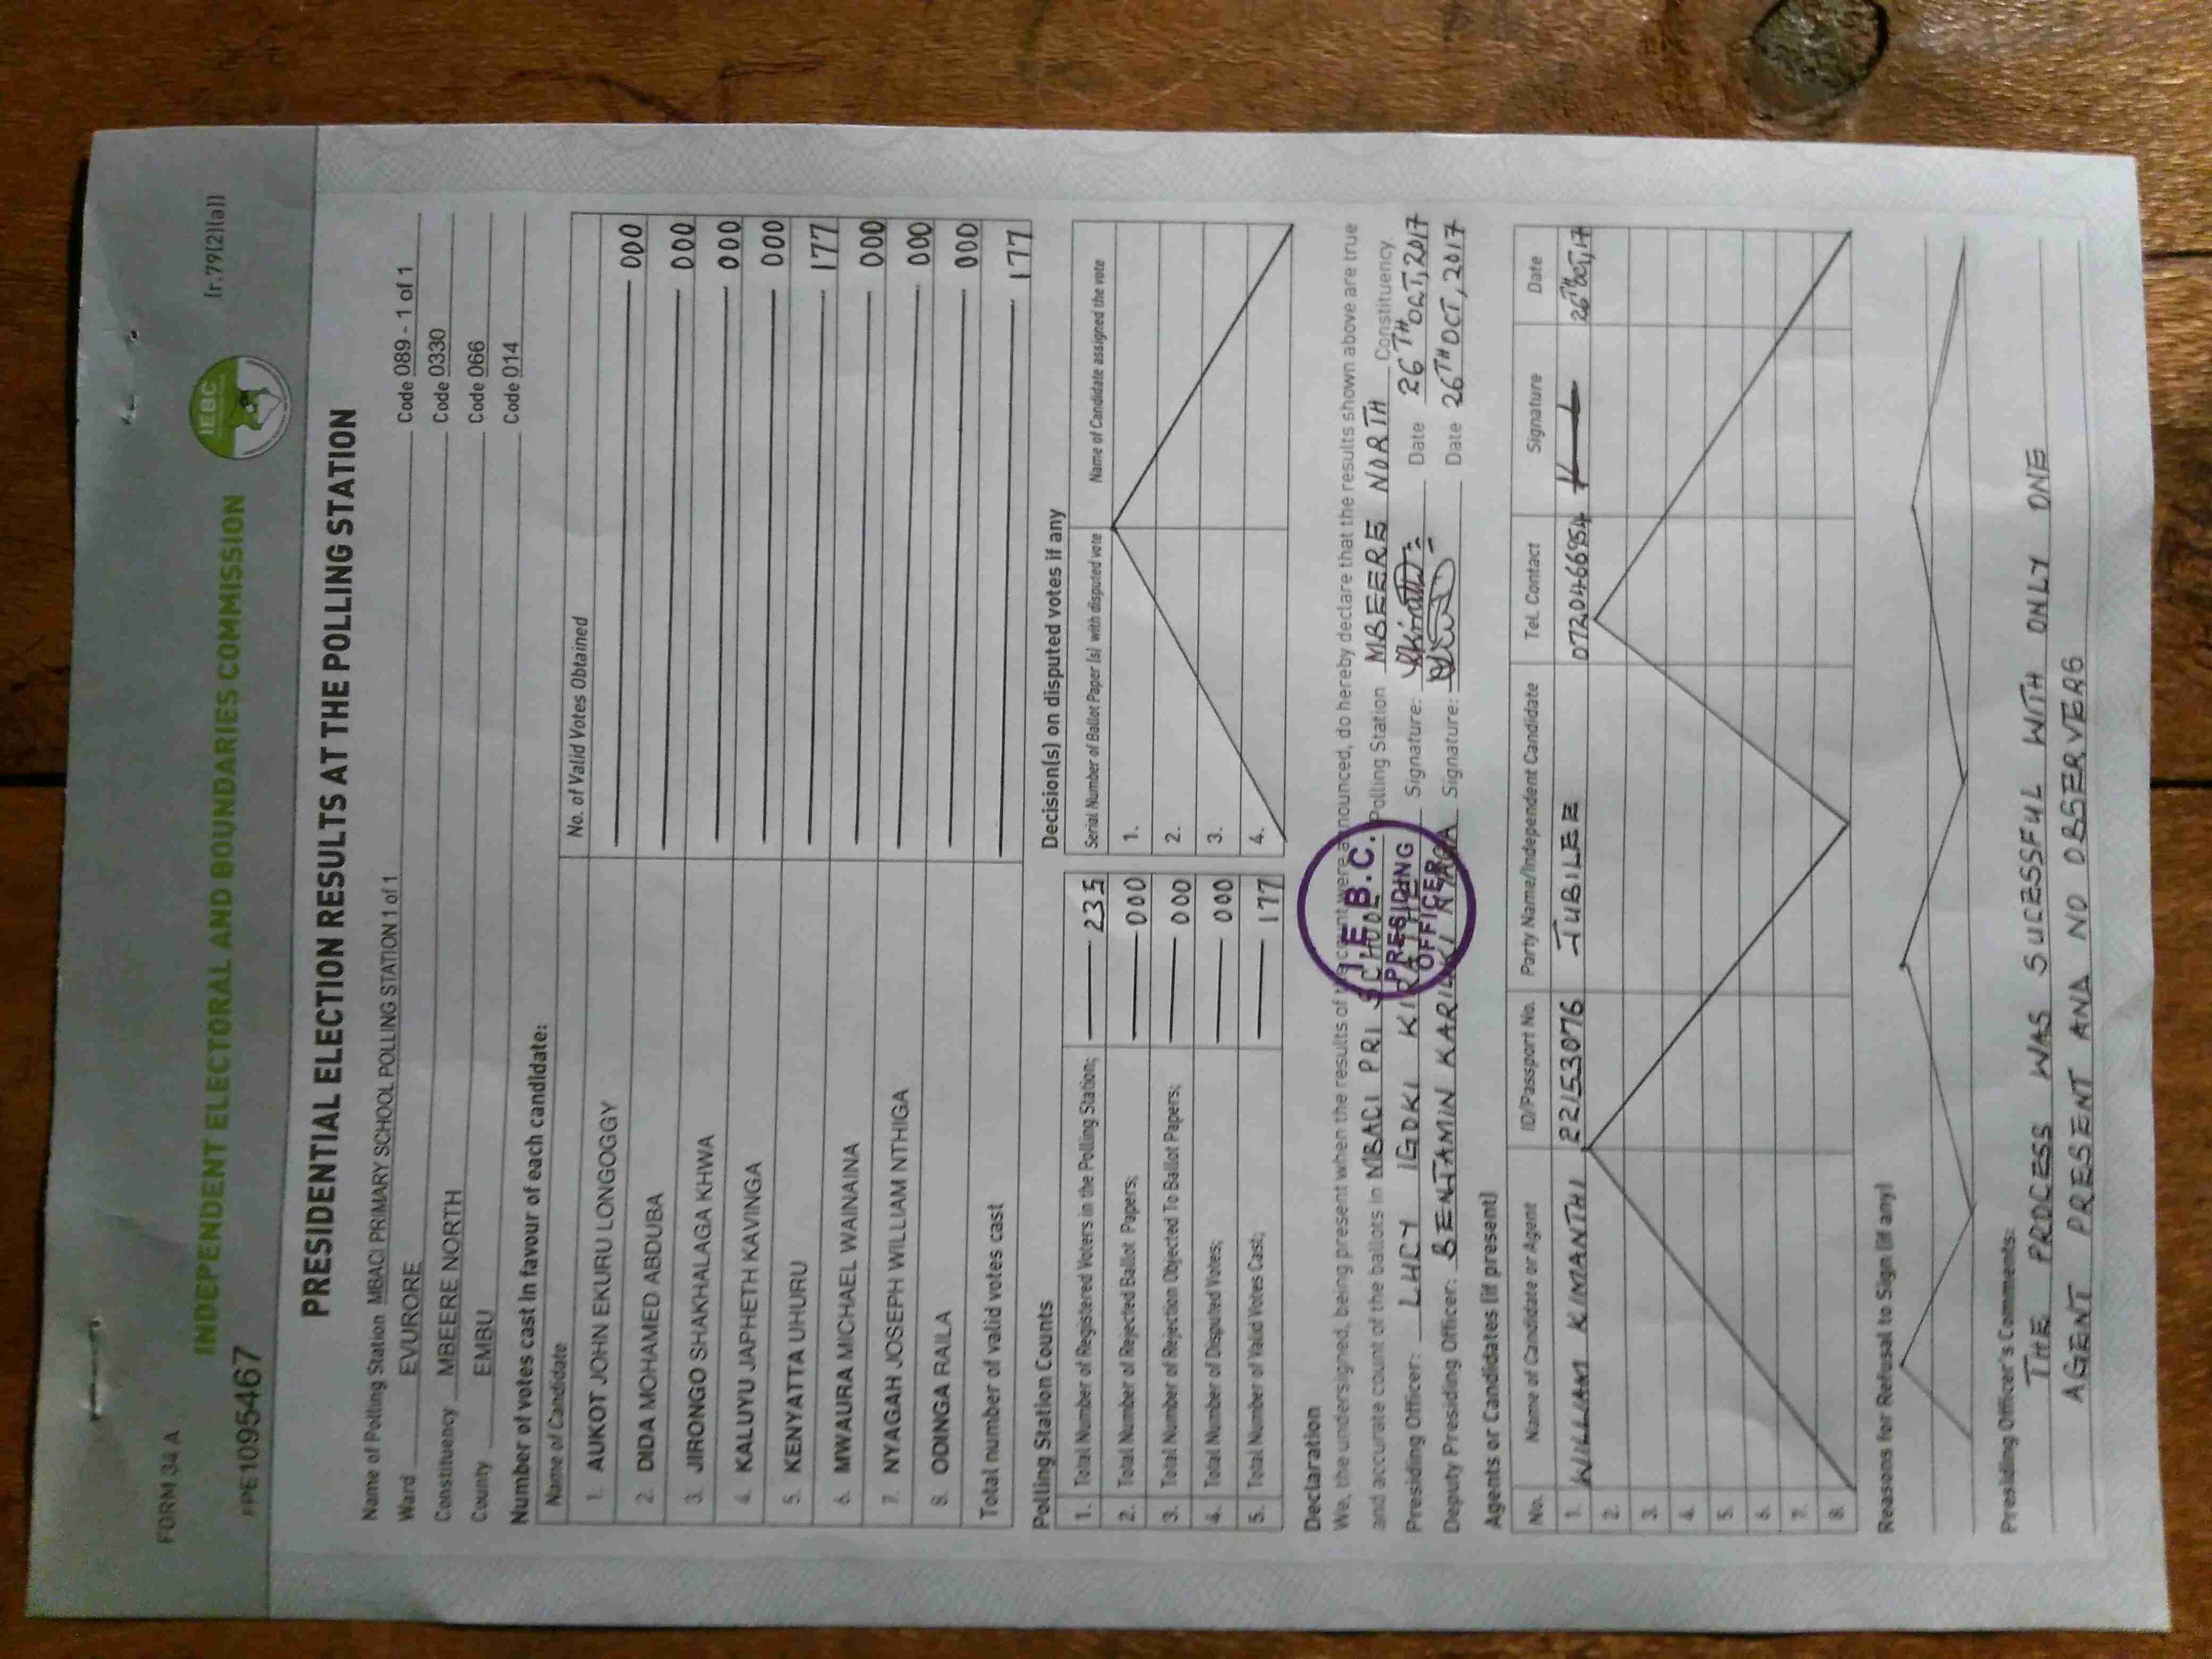 FORM 34 A
(r.79(2)(a))
IEBC
INDEPENDENT ELECTORAL AND BOUNDARIES COMMISSION
PPE1095467
PRESIDENTIAL ELECTION RESULTS AT THE POLLING STATION
Name of Polling Station MBACI PRIMARY SCHOOL POLLING STATION 1 of 1 Code 089 - 1 of 1
Ward EVURORE Code 0330
Constituency MBEERE NORTH Code 066
County EMBU Code 014
Number of votes cast in favour of each candidate:
Name of Candidate No. of Valid Votes Obtained
1. AUKOT JOHN EKURU LONGOGGY 000
2. DIDA MOHAMED ABDUBA 000
3. JIRONGO SHAKHALAGA KHWA 000
4. KALUYU JAPHETH KAVINGA 000
5. KENYATTA UHURU 177
6. MWAURA MICHAEL WAINAINA 000
7. NYAGAH JOSEPH WILLIAM NTHIGA 000
8. ODINGA RAILA 000
Total number of valid votes cast 177
Polling Station Counts
1. Total Number of Registered Voters in the Polling Station; 235
2. Total Number of Rejected Ballot Papers; 000
3. Total Number of Rejection Objected To Ballot Papers; 000
4. Total Number of Disputed Votes; 000
5. Total Number of Valid Votes Cast; 177
Decision(s) on disputed votes if any
Serial Number of Ballot Paper (s) with disputed vote Name of Candidate assigned the vote
1.
2.
3.
4.
Declaration
We, the undersigned, being present when the results of the count were announced, do hereby declare that the results shown above are true
and accurate count of the ballots in MBACI PRI SCHOOL Polling Station MBEERE NORTH Constituency.
Presiding Officer: LUCY IGOKI Signature: Date 26TH OCT, 2017
Deputy Presiding Officer: BENJAMIN KARIUKI Signature: Date 26TH OCT, 2017
I.E.B.C.
PRESIDING
OFFICER
Agents or Candidates (if present)
No. Name of Candidate or Agent ID/Passport No. Party Name/Independent Candidate Tel. Contact Signature Date
1. WILLIAM KIMANTHI 22153076 JUBILEE 0720466954 26TH OCT, 17
2.
3.
4.
5.
6.
7.
8.
Reasons for Refusal to Sign (if any)
Presiding Officer's Comments:
THE PROCESS WAS SUCESSFUL WITH ONLY ONE
AGENT PRESENT ANA NO OBSERVERG